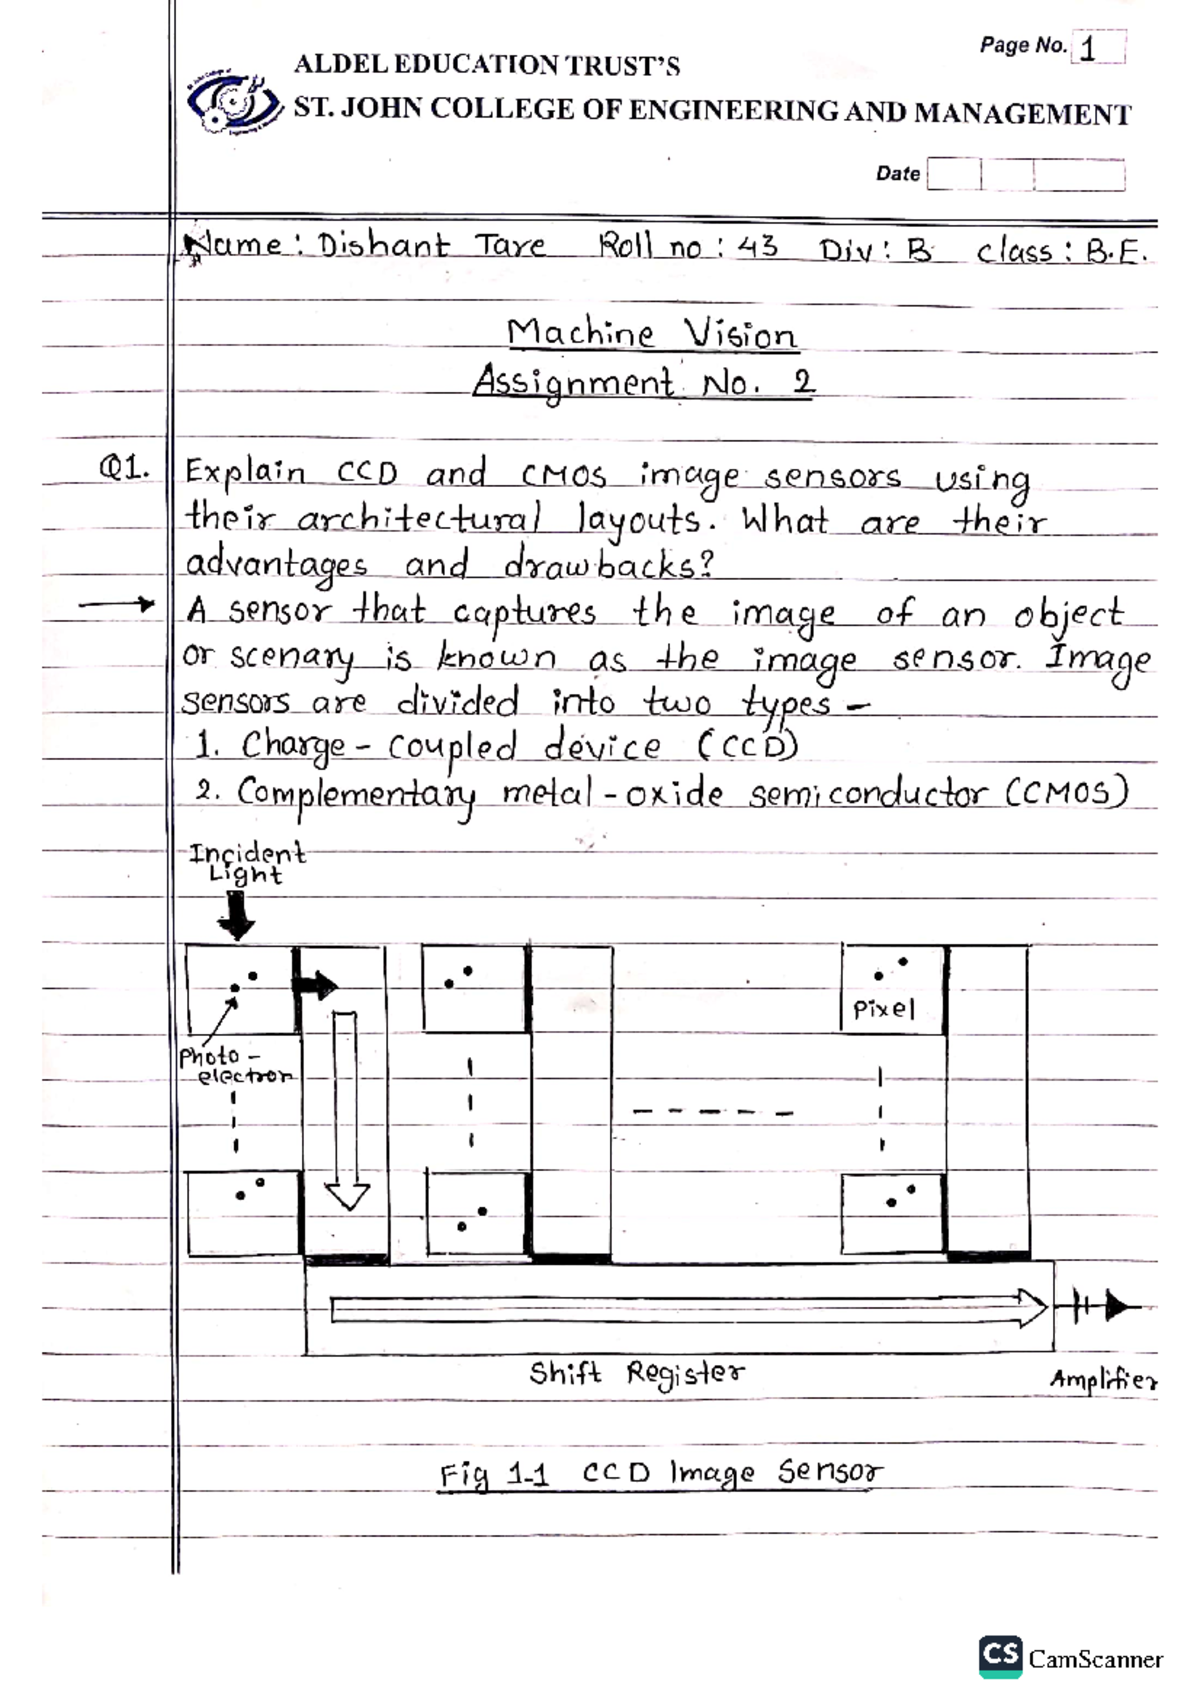 Page No. 1
ALDEL EDUCATION TRUST'S
ST. JOHN COLLEGE OF ENGINEERING AND MANAGEMENT
Date
Name: Dishant Tare Roll no: 43 Div: B class: B.E.
Machine Vision
Assignment No. 2
Q1. Explain CCD and CMOS image sensors using
their architectural layouts. What are their
advantages and drawbacks?
→ A sensor that captures the image of an object
or scenary is known as the image sensor. Image
sensors are divided into two types -
1. Charge-coupled device (CCD)
2. Complementary metal-oxide semiconductor (CMOS)
Incident
Light
Pixel
Photo-
electron
Shift Register
Amplifier
Fig 1.1 CCD Image Sensor
CS CamScanner